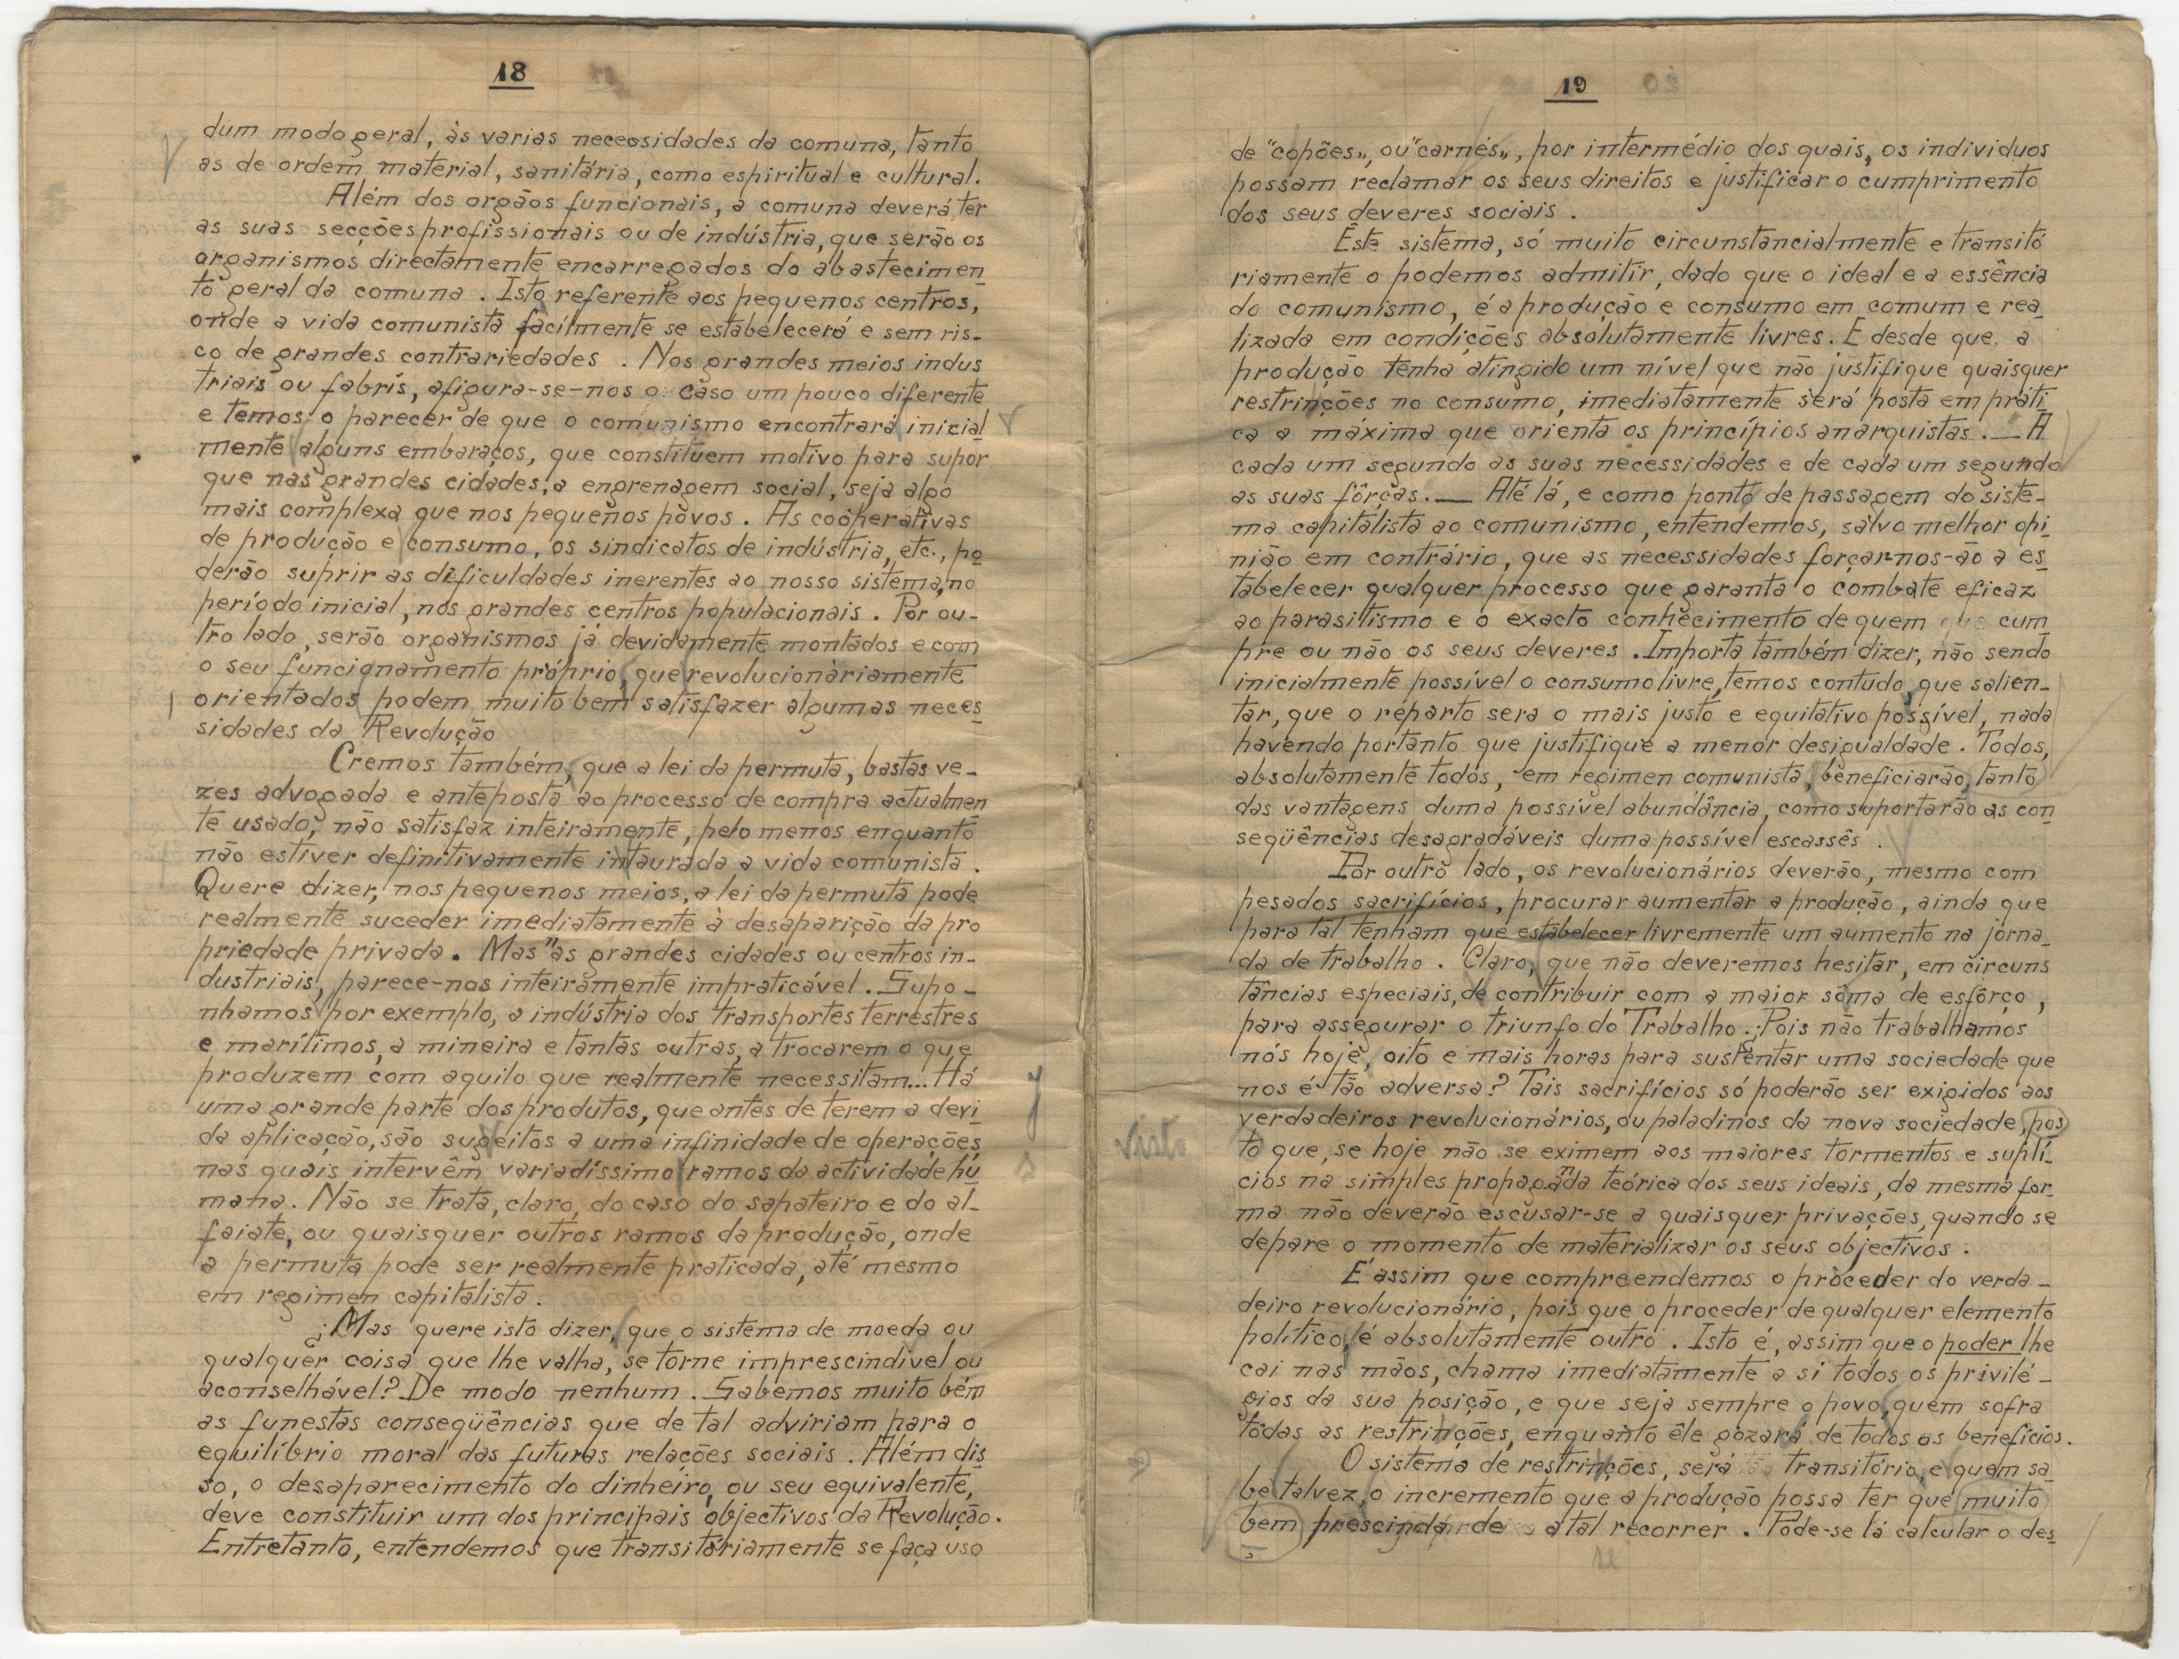 18
dum modo geral, às varias necessidades da comuna, tanto
as de ordem material, sanitária, como espiritual e cultural.
Além dos orgãos funcionais, a comuna deverá ter
as suas secções profissionais ou de indústria, que serão os
organismos directamente encarregados do abastecimen
to geral da comuna. Isto referente aos pequenos centros,
onde a vida comunista facilmente se estabelecerá e sem ris-
co de grandes contrariedades. Nos grandes meios indus
triais ou fabrís, afigura-se-nos o caso um pouco diferente
e temos o parecer de que o comunismo encontrará inicial
mente alguns embaraços, que constituem motivo para supor
que nas grandes cidades, a engrenagem social, seja algo
mais complexa que nos pequenos povos. As cooperativas
de produção e consumo, os sindicatos de indústria, etc., po
derão suprir as dificuldades inerentes ao nosso sistema, no
período inicial, nos grandes centros populacionais. Por ou-
tro lado, serão organismos já devidamente montados e com
o seu funcionamento próprio, que revolucionàriamente
orientados podem muito bem satisfazer algumas neces
sidades da Revolução
Cremos também, que a lei da permuta, bastas ve-
zes advogada e anteposta ao processo de compra actualmen
te usado, não satisfaz inteiramente, pelo menos enquanto
não estiver definitivamente intaurada a vida comunista.
Quere dizer, nos pequenos meios, a lei da permuta pode
realmente suceder imediatamente à desaparição da pro
priedade privada. Mas nas grandes cidades ou centros in-
dustriais, parece-nos inteiramente impraticável. Supo-
nhamos por exemplo, a indústria dos transportes terrestres
e marítimos, a mineira e tantas outras, a trocarem o que
produzem com aquilo que realmente necessitam... Há
uma grande parte dos produtos, que antes de terem a devi
da aplicação, são sugeitos a uma infinidade de operações,
nas quais intervêm variadíssimo ramos da actividade hu
mana. Não se trata, claro, do caso do sapateiro e do al-
faiate, ou quaisquer outros ramos da produção, onde
a permuta pode ser realmente praticada, até mesmo
em regimen capitalista.
¿Mas quere isto dizer, que o sistema de moeda ou
qualquer coisa que lhe valha, se torne imprescindivel ou
aconselhável? De modo nenhum. Sabemos muito bem
as funestas conseqüências que de tal adviriam para o
equilíbrio moral das futuras relações sociais. Além dis
so, o desaparecimento do dinheiro, ou seu equivalente,
deve constituir um dos principais objectivos da Revolução.
Entretanto, entendemos que transitóriamente se faça uso
19
de "copões„ ou "carnés„, por intermédio dos quais, os individuos
possam reclamar os seus direitos e justificar o cumprimento
dos seus deveres sociais.
Este sistema, só muito circunstancialmente e transitó
riamente o podemos admitir, dado que o ideal e a essência
do comunismo, é a produção e consumo em comum e rea
lizada em condições absolutamente livres. E desde que a
produção tenha atingido um nível que não justifique quaisquer
restrinções no consumo, imediatamente será posta em práti
ca a máxima que orienta os princípios anarquistas. — A
cada um segundo as suas necessidades e de cada um segundo
as suas fôrças. — Até lá, e como ponto de passagem do siste-
ma capitalista ao comunismo, entendemos, salvo melhor opi
nião em contrário, que as necessidades forçar-nos-ão a es
tabelecer qualquer processo que garanta o combate eficaz
ao parasitismo e o exacto conhecimento de quem cum
pre ou não os seus deveres. Importa também dizer, não sendo
inicialmente possível o consumo livre, temos contudo, que salien-
tar, que o reparto sera o mais justo e equitativo possível, nada
havendo portanto que justifique a menor desigualdade. Todos,
absolutamente todos, em regimen comunista, beneficiarão, tanto
das vantagens duma possível abundância, como suportarão as con
seqüências desagradáveis duma possível escassês.
Por outro lado, os revolucionários deverão, mesmo com
pesados sacrifícios, procurar aumentar a produção, ainda que
para tal tenham que estabelecer livremente um aumento na jorna-
da de trabalho. Claro, que não deveremos hesitar, em circuns
tâncias especiais, de contribuir com a maior sôma de esfôrço,
para assegurar o triunfo do Trabalho. ¿Pois não trabalhamos
nós hoje, oito e mais horas para sustentar uma sociedade que
nos é tão adversa? Tais sacrifícios só poderão ser exigidos aos
verdadeiros revolucionários, ou paladinos da nova sociedade, pos
Visto
to que, se hoje não se eximem aos maiores tormentos e suplí-
cios na simples propaganda teórica dos seus ideais, da mesma for-
ma não deverão escusar-se a quaisquer privações, quando se
depare o momento de materializar os seus objectivos.
É assim que compreendemos o proceder do verda-
deiro revolucionário, pois que o proceder de qualquer elemento
político, é absolutamente outro. Isto é, assim que o poder lhe
cai nas mãos, chama imediatamente a si todos os privilé-
gios da sua posição, e que seja sempre o povo, quem sofra
tôdas as restrinções, enquanto êle gozará de todos os benefícios.
O sistema de restrinções, será transitório, e quem sa
be talvez, o incremento que a produção possa ter que muito
bem prescinda de a tal recorrer. Pode-se lá calcular o des